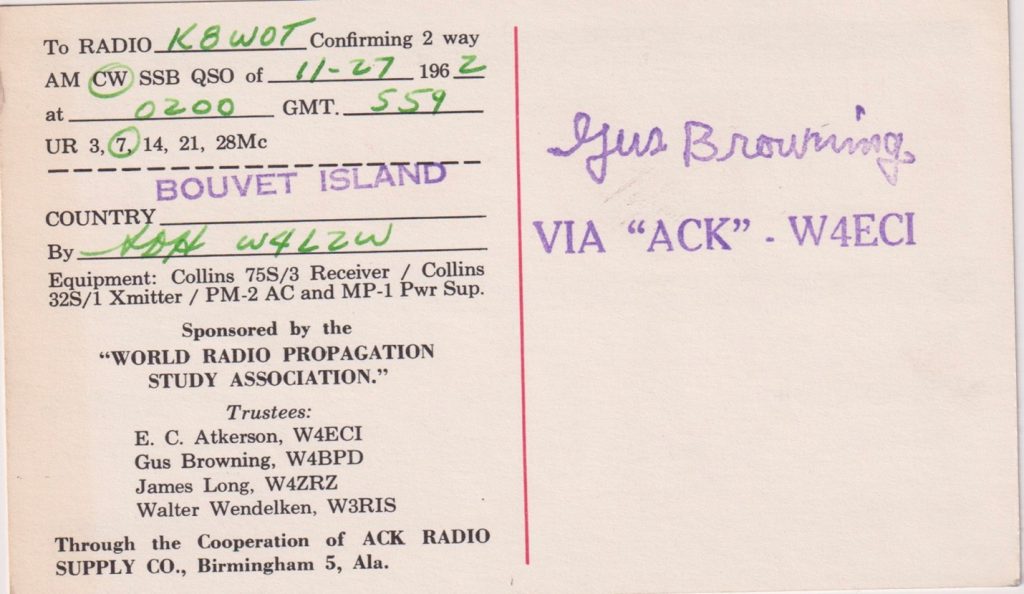 To RADIO K8WOT Confirming 2 way
AM CW SSB QSO of 11-27 1962
at 0200 GMT. 559
UR 3, 7, 14, 21, 28Mc
BOUVET ISLAND
COUNTRY
By W4LZW
Equipment: Collins 75S/3 Receiver / Collins
32S/1 Xmitter / PM-2 AC and MP-1 Pwr Sup.
Sponsored by the
“WORLD RADIO PROPAGATION
STUDY ASSOCIATION.”
Trustees:
E. C. Atkerson, W4ECI
Gus Browning, W4BPD
James Long, W4ZRZ
Walter Wendelken, W3RIS
Through the Cooperation of ACK RADIO
SUPPLY CO., Birmingham 5, Ala.
Gus Browning
VIA “ACK” - W4ECI